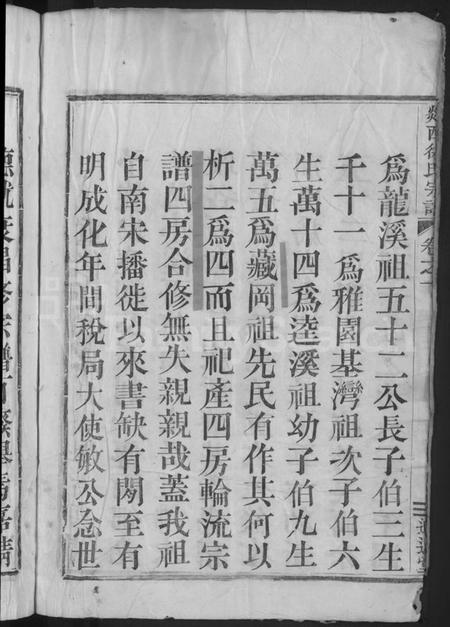 西徐氏宗譜 卷之一
爲龍溪祖五十二公長子伯三生
千十一爲雅園基灣祖次子伯六
生萬十四爲逵溪祖幼子伯九生
萬五爲藏岡祖先民有作其何以
析二爲四而且祀產四房輪流宗
譜四房合修無失親親哉蓋我祖
自南宋播徙以來書缺有閒至有
明成化年間稅局大使敏公念世